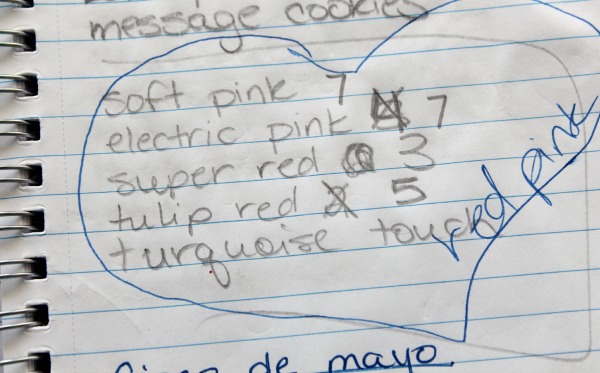 message cookies
soft pink 7
electric pink 7
super red 3
tulip red 5
turquoise touch
red pink
de mayo